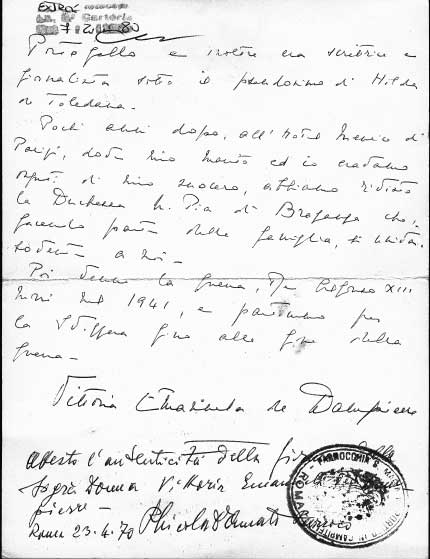 Portogallo e inoltre era scrittrice e
giornalista sotto il pseudonimo di Hilda
de Toledano.
Pochi anni dopo, all'Hotel Meurice di
Parigi, dove mio marito ed io eravamo
ospiti di mio suocero, abbiamo rivisto
la Duchessa M. Pia di Braganza che,
facendo parte della famiglia, si univa
a noi -
Poi venne la guerra, Re Alfonso XIII
morì nel 1941, e partimmo per
la Svizzera fino alla fine della
guerra -
Vittoria Emanuela de Dampierre
Attesto l'autenticità della firma della
Sig.ra Donna Vittoria Emanuela de Dampierre -
Roma 23.4.70
PARROCCHIA S. M. IN PORTICO IN CAMPITELLI - ROMA